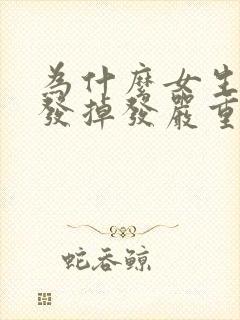 為什麼女生
發掉發嚴重
蛇吞鯨